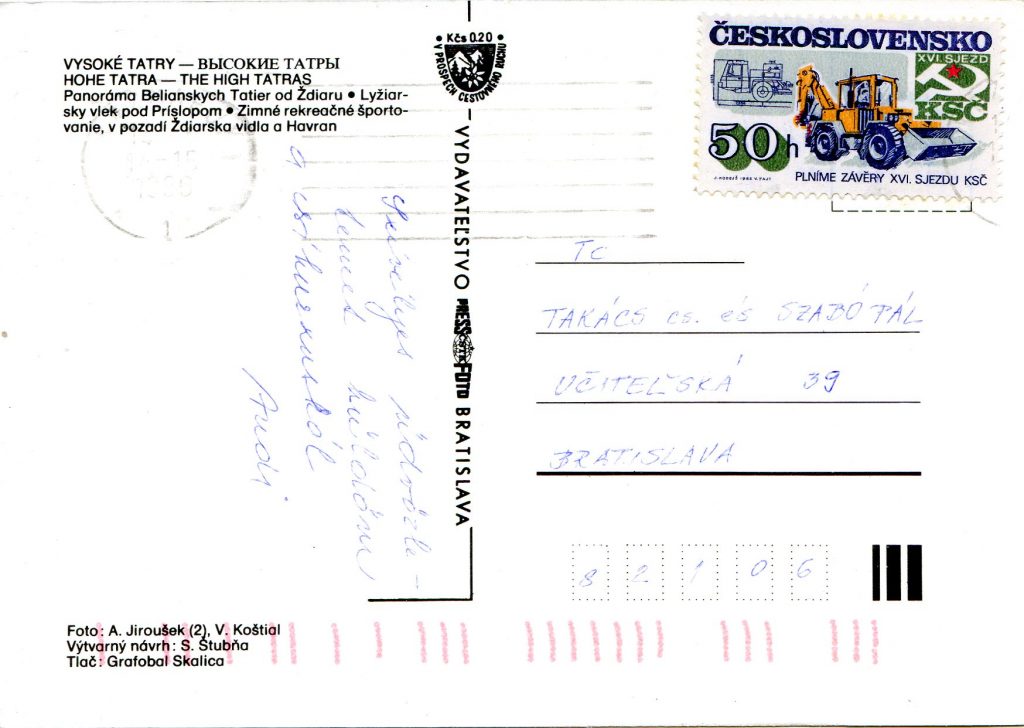 VYSOKÉ TATRY — ВЫСОКИЕ ТАТРЫ
HOHE TATRA — THE HIGH TATRAS
Panoráma Belianskych Tatier od Ždiaru ● Lyžiar-
sky vlek pod Príslopom ● Zimné rekreačné športo-
vanie, v pozadí Ždiarska vidla a Havran
• Kčs 0.20 •
V PROSPECH CESTOVNÉHO RUCHU
VYDAVATEĽSTVO PRESSFOTO BRATISLAVA
ČESKOSLOVENSKO
XVI. SJEZD
KSČ
50h
PLNÍME ZÁVĚRY XVI. SJEZDU KSČ
üdvözle-
temet küldöm
a
Andi
Tc
TAKÁCS cs. és SZABÓ PÁL
UČITEĽSKÁ 39
BRATISLAVA
82106
Foto: A. Jiroušek (2), V. Koštial
Výtvarný návrh: S. Štubňa
Tlač: Grafobal Skalica